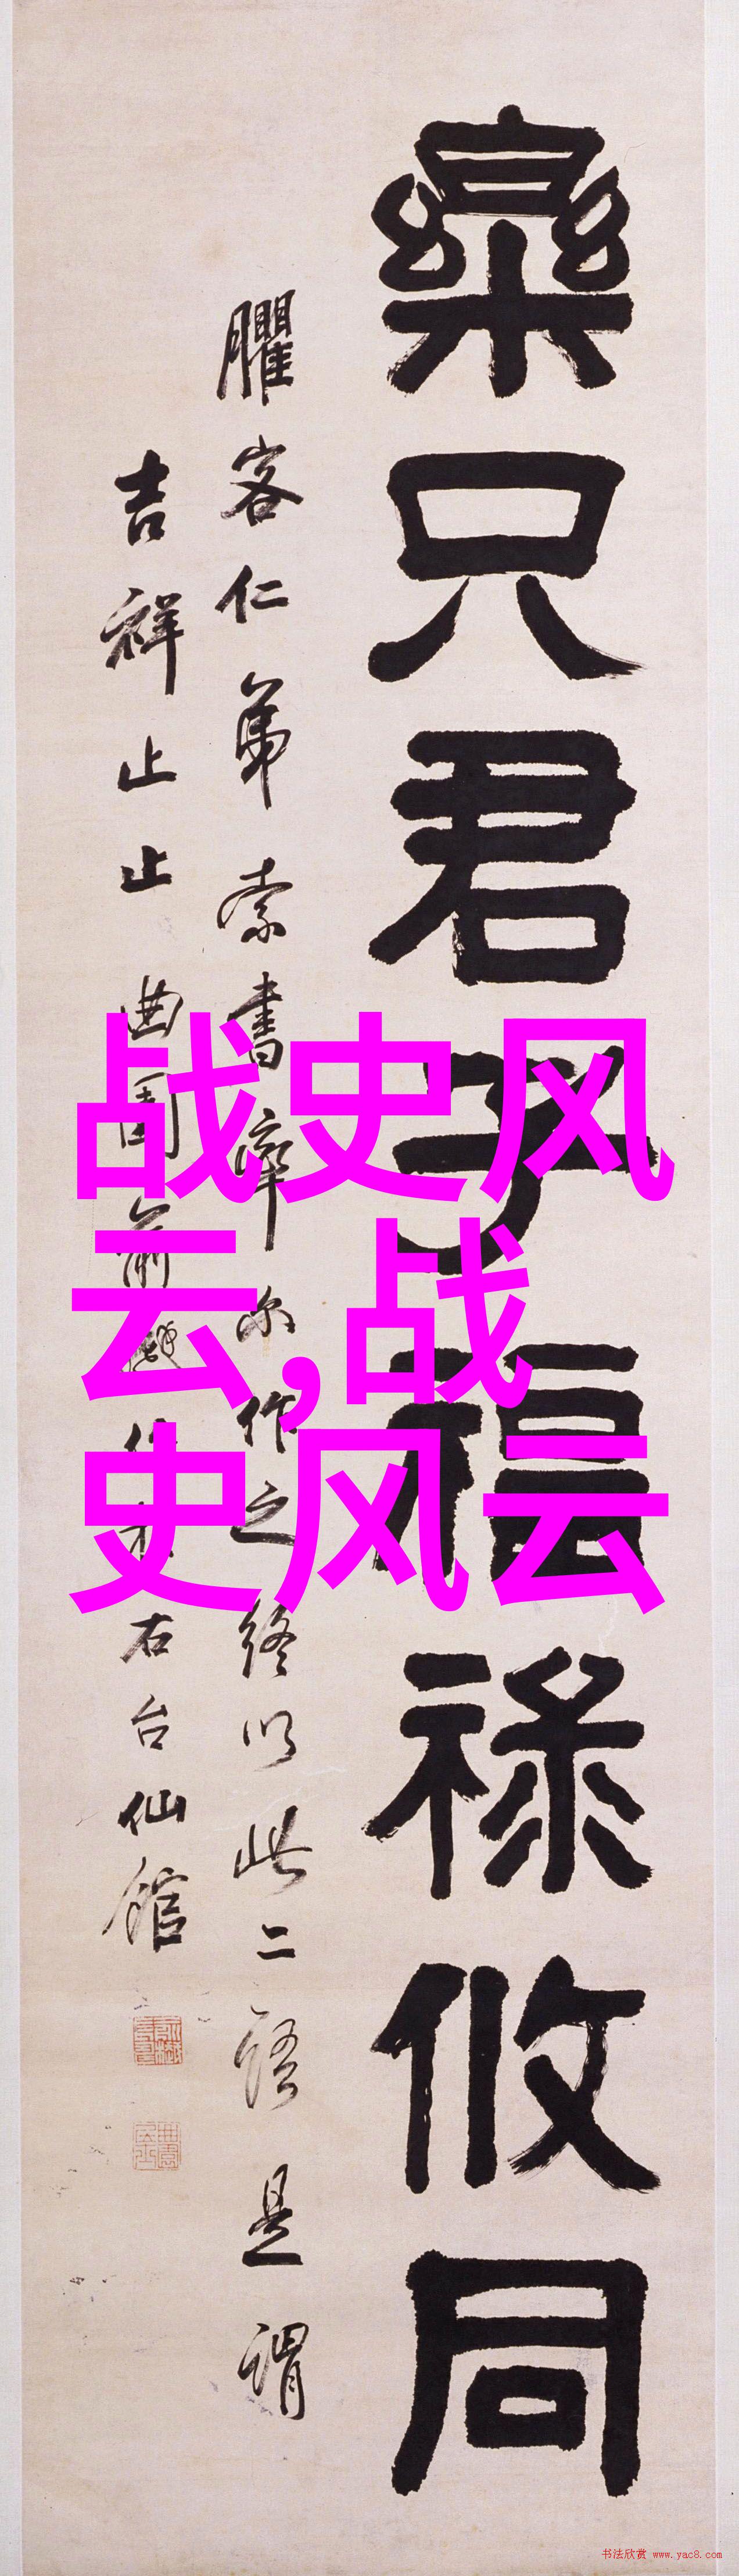 樂只君子福祿攸同
臞客仁弟索書率尔作之終以此二語是謂
吉祥止止曲園俞樾右台仙館
战史风
云,战
史风云
书法欣赏 www.yac8.com